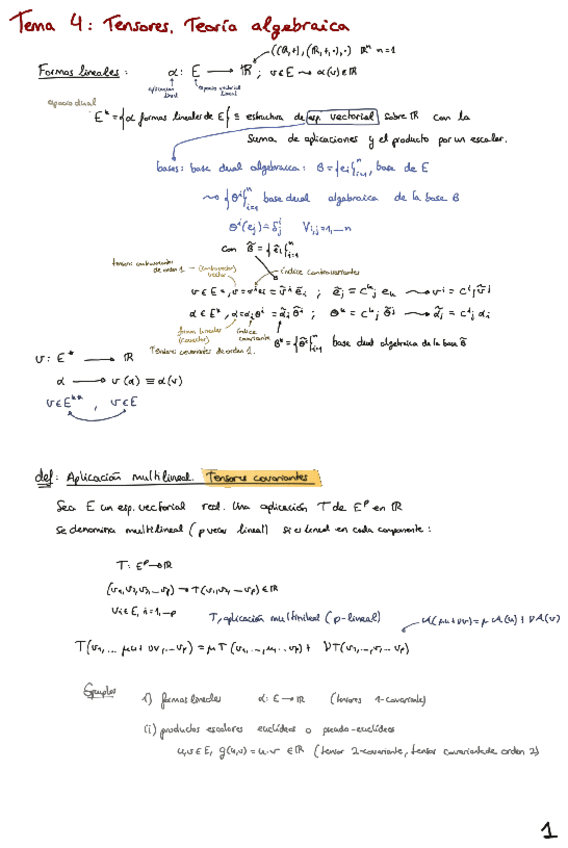 Tema 4: Tensores. Teoría algebraica
((ℝ,+), (ℝ,+,·),·) ℝⁿ n=1
Formas lineales: α: E → ℝ ; v∈E ⇝ α(v)∈ℝ
aplicación lineal
espacio vectorial
espacio dual
E* = {α formas lineales de E} ≡ estructura de esp. vectorial sobre ℝ con la
suma de aplicaciones y el producto por un escalar.
bases: base dual algebraica: B={eᵢ}ⁿᵢ₌₁, base de E
⇝ {θⁱ}ⁿᵢ₌₁ base dual algebraica de la base B
θⁱ(eⱼ)=δⁱⱼ ∀i,j=1,...n
con B̃={ẽᵢ}ⁿᵢ₌₁
tensores contravariantes de orden 1 — (contravector) vector
índice contravariantes
v∈E, v=vⁱeᵢ=ṽⁱẽᵢ ; ẽⱼ=Cᵏⱼ eₖ ⇝ vⁱ=Cⁱⱼṽʲ
α∈E*, α=αᵢθⁱ=α̃ᵢθ̃ⁱ ; θᵏ=Cᵏⱼ θ̃ʲ ⇝ α̃ⱼ=Cⁱⱼ αᵢ
formas lineales (covector)
índice covariante
Tensores covariantes de orden 1.
B̃*={θ̃ⁱ}ⁿᵢ₌₁ base dual algebraica de la base B̃
v: E* → ℝ
α → v(α) ≡ α(v)
v∈E**, v∈E
def: Aplicación multilineal. Tensores covariantes
Sea E un esp. vectorial real. Una aplicación T de Eᵖ en ℝ
se denomina multilineal (p veces lineal) si es lineal en cada componente:
T: Eᵖ→ℝ
(v₁,v₂,v₃,...vₚ) → T(v₁,v₂,...vₚ)∈ℝ
vᵢ∈E, i=1,...p
T, aplicación multilineal (p-lineal)
A(μu+νv)=μA(u)+νA(v)
T(v₁,... μu+νv,...vₚ) = μT(v₁,...,u,...vₚ)+ νT(v₁,...,v,...vₚ)
Ejemplos
i) formas lineales α: E→ℝ (tensores 1-covariante)
ii) productos escalares euclídeos o pseudo-euclídeos
u,v∈E, g(u,v)=u·v ∈ℝ (tensor 2-covariante, tensor covariante de orden 2)
1